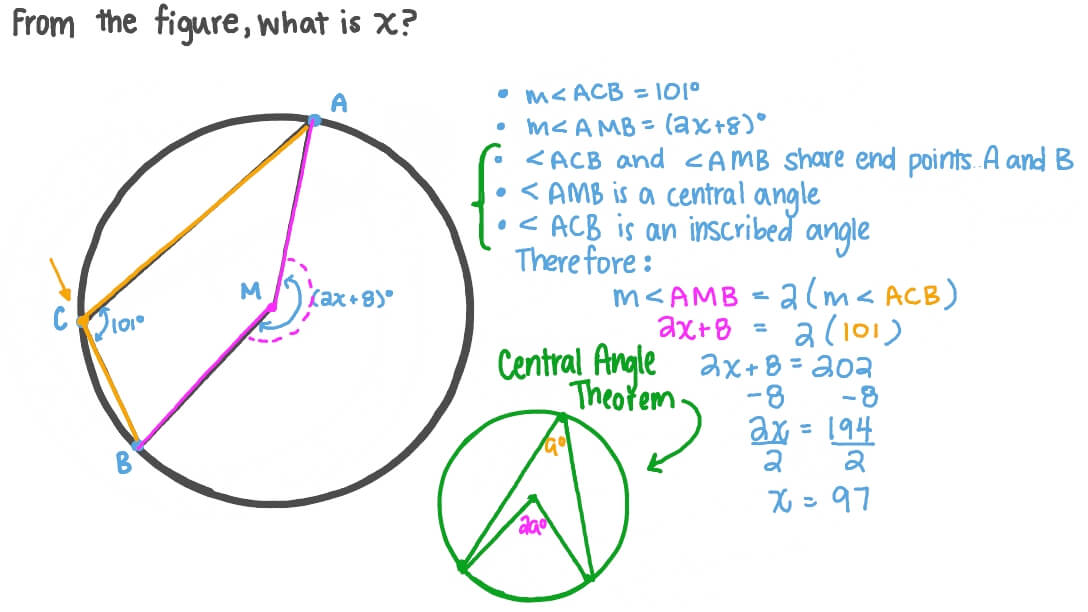 From the figure, what is x?
A
M
(2x+8)°
C
101°
B
• m<ACB = 101°
• m<AMB = (2x+8)°
• <ACB and <AMB share end points A and B
• <AMB is a central angle
• <ACB is an inscribed angle
Therefore:
m<AMB = 2(m<ACB)
2x+8 = 2(101)
2x+8 = 202
-8 -8
2x = 194
2 2
x = 97
Central Angle
Theorem
a°
2a°